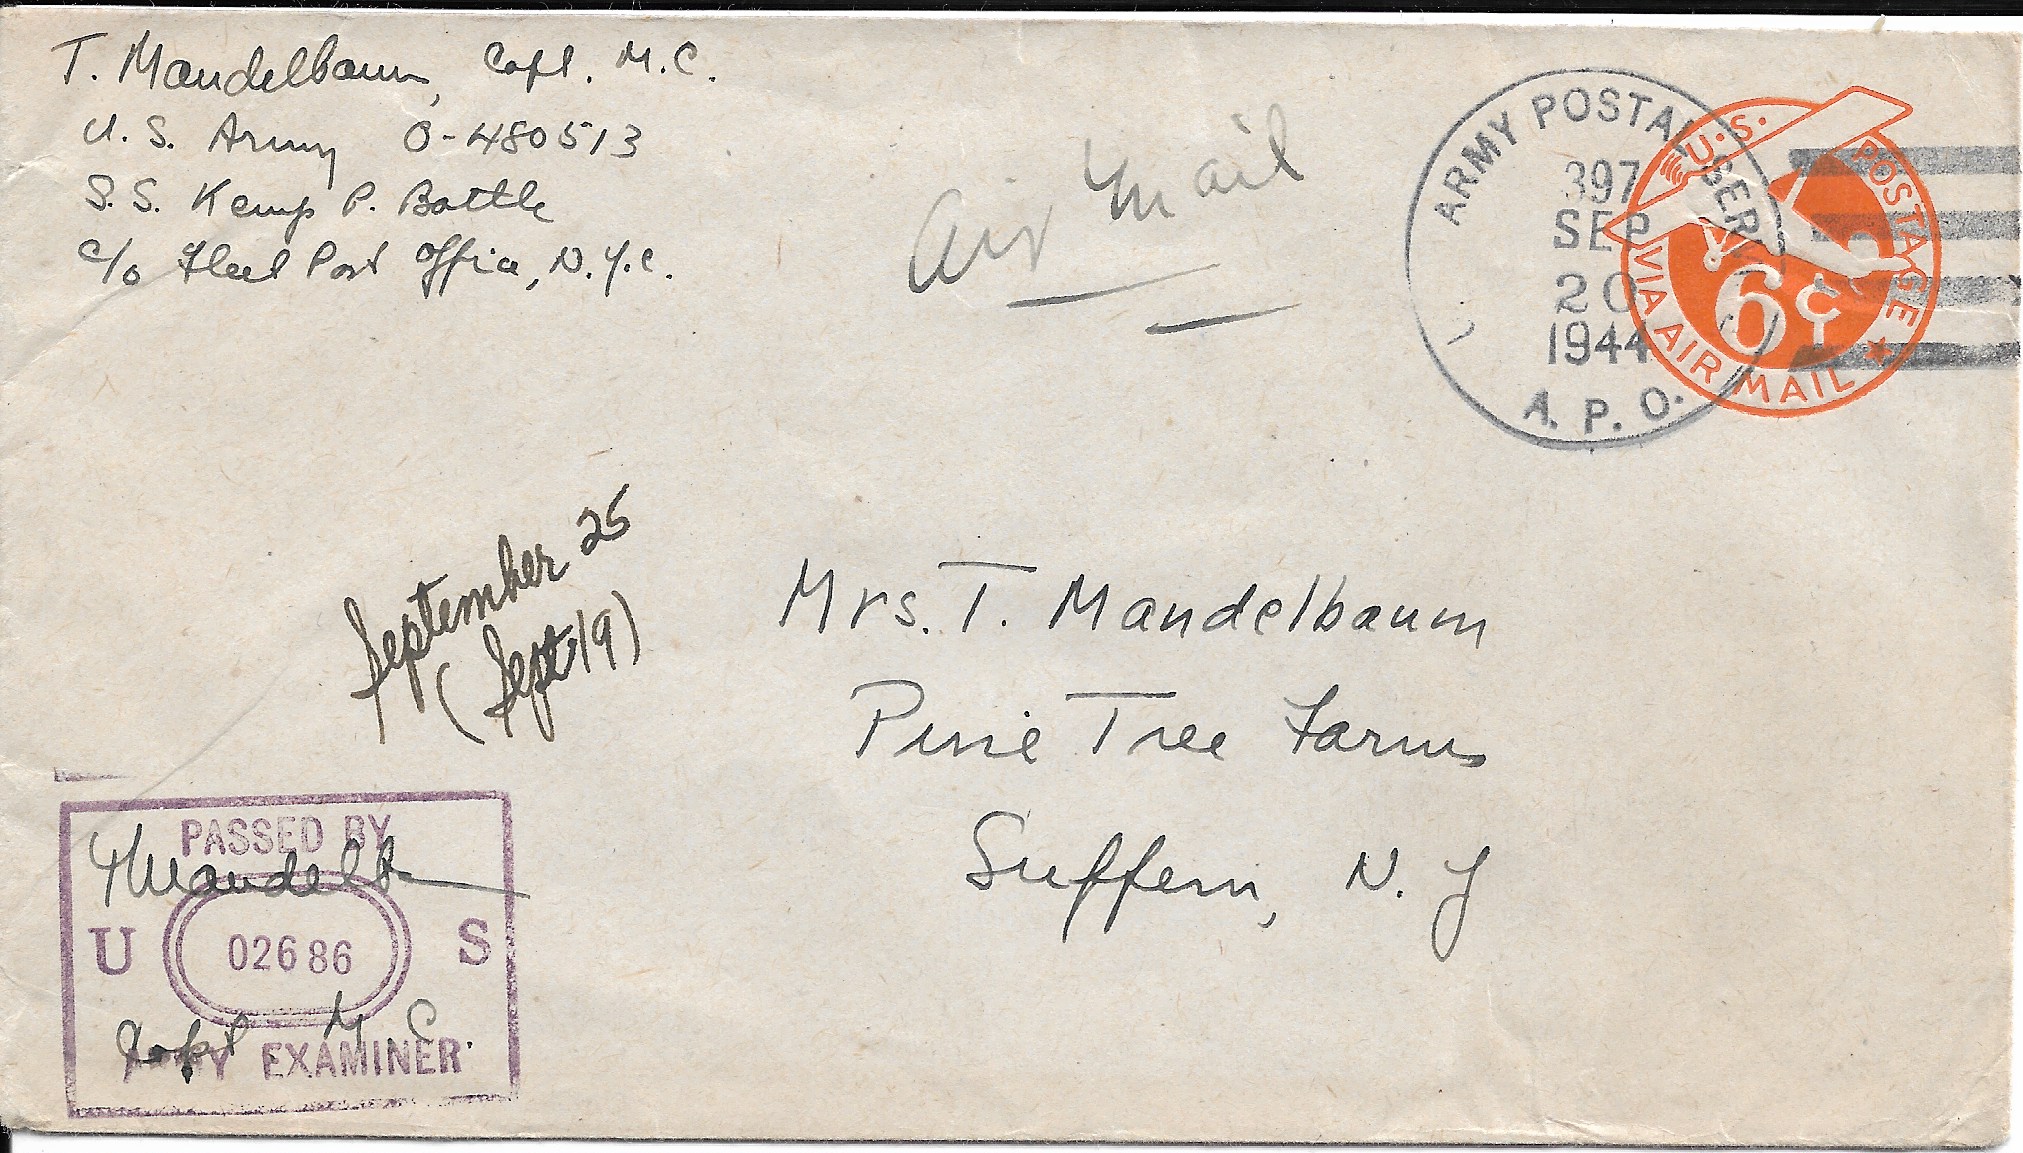 T. Mandelbaum, Capt. M.C.
U.S. Army O-480513
S.S. Kemp P. Battle
c/o Fleet Post Office, N.Y.C.
Air Mail
ARMY POSTAL SERV
397
SEP
20
1944
A.P.O.
U.S. POSTAGE
6¢
VIA AIR MAIL
September 25
(Sept 19)
Mrs. T. Mandelbaum
Pine Tree Farms
Suffern, N.Y
PASSED BY
TMandelb
U 02686 S
Capt M C
ARMY EXAMINER